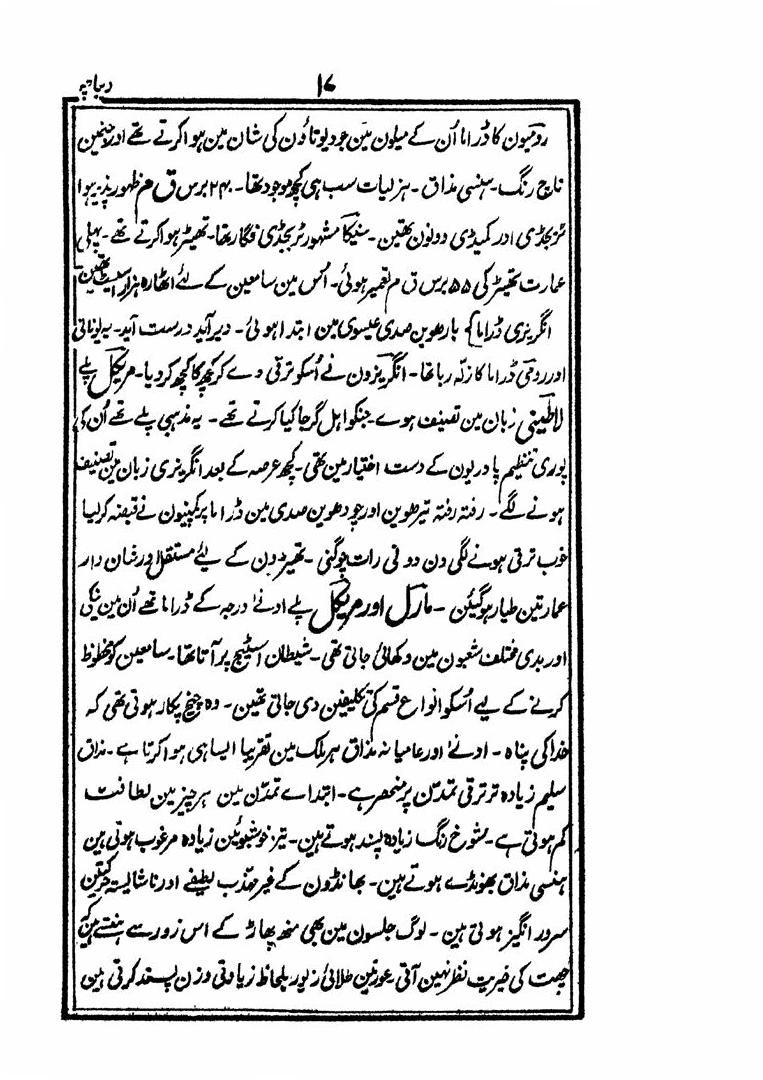 دیباچہ
۱۷
رومیون کا ڈراما اُن کے میلون مین جو دیوتاؤن کی شان مین ہوا کرتے تھے اور جنمین
ناچ رنگ۔ ہنسی مذاق۔ ہزلیات سب ہی کچھ موجود تھا۔ ۲۴۰ برس ق م ظہور پذیر ہوا
ٹریجڈی اور کمیڈی دونون تھین۔ سنیکا مشہور ٹریجڈی نگار تھا۔ تھیٹر ہوا کرتے تھے۔ پہلی
عمارت تھیٹر کی ۵۵ برس ق م تعمیر ہوئی۔ اُس مین سامعین کے لئے اٹھارہ ہزار سیٹ تھین
انگریزی ڈراما} بارھوین صدی عیسوی مین ابتدا ہوئی۔ دیر آید درست آید۔ یہ یونانی
اور رومی ڈراما کا زلّہ ربا تھا۔ انگریزون نے اُسکو ترقی دے کر کچھ کا کچھ کر دیا۔ مریکل پلے
لاطینی زبان مین تصنیف ہوے۔ جنکو اہل گرجا کیا کرتے تھے۔ یہ مذہبی پلے تھے اُن کی
پوری تنظیم پادریون کے دست اختیار مین تھی۔ کچھ عرصہ کے بعد انگریزی زبان مین تصنیف
ہونے لگے۔ رفتہ رفتہ تیرھوین اور چودھوین صدی مین ڈراما پر کمپنیون نے قبضہ کر لیا
خوب ترقی ہونے لگی دن دونی رات چوگنی۔ تھیٹرون کے لئے مستقل اور شان دار
عمارتین طیار ہوگئین۔ مارل اور مریکل پلے ادنےٰ درجہ کے ڈراما تھے اُن مین نیکی
اور بدی مختلف شعبون مین دکھائی جاتی تھی۔ شیطان اسٹیج پر آتا تھا۔ سامعین کو محظوظ
کرنے کے لیے اُسکو انواع قسم کی تکلیفین دی جاتی تھین۔ وہ چیخ پکار ہوتی تھی کہ
خدا کی پناہ۔ ادنےٰ اور عامیانہ مذاق ہر ملک مین تقریبا ایسا ہی ہوا کرتا ہے۔ مذاق
سلیم زیادہ تر ترقی تمدّن پر منحصر ہے۔ ابتداے تمدّن مین ہر چیز مین لطافت
کم ہوتی ہے۔ شوخ رنگ زیادہ پسند ہوتے ہین۔ تیز خوشبوئین زیادہ مرغوب ہوتی ہین
ہنسی مذاق بھونڈے ہوتے ہین۔ بھانڈون کے غیر مہذب لطیفے اور ناشایستہ حرکتین
سرور انگیز ہوتی ہین۔ لوگ جلسون مین بھی منھ پھاڑ کے اس زور سے ہنستے ہین کہ
چھت کی خیریت نظر نہین آتی۔ عورتین طلائی زیور بلحاظ زیادتی وزن پسند کرتی ہین